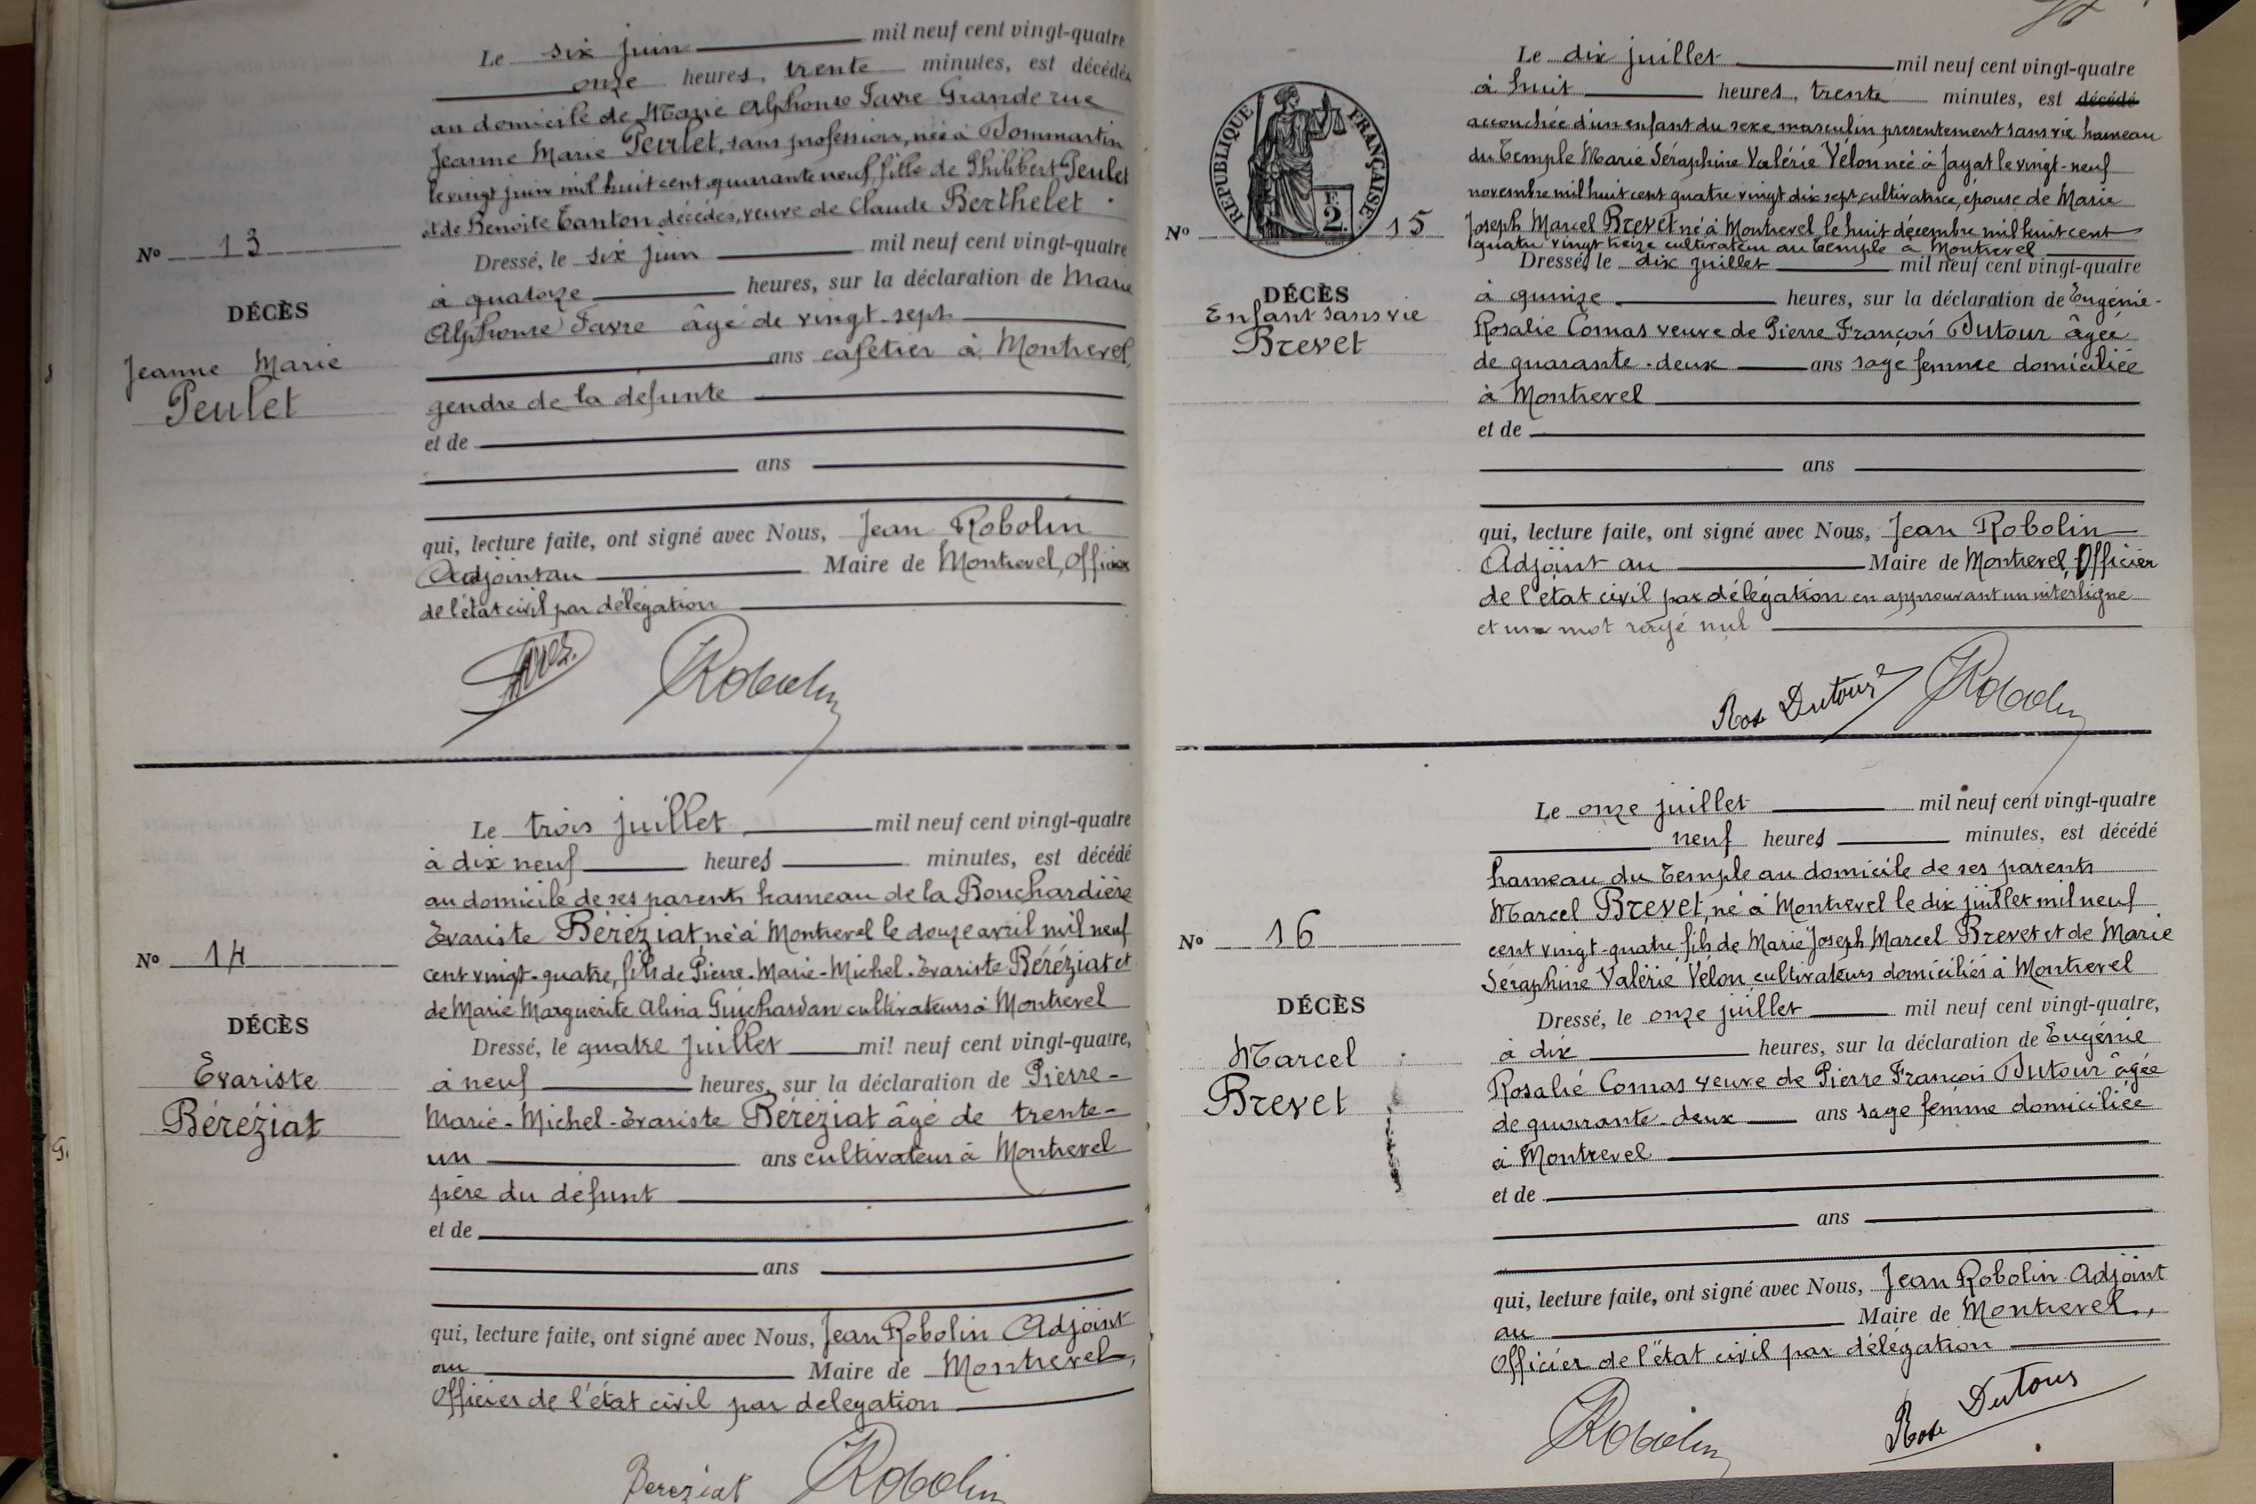 Le six juin mil neuf cent vingt-quatre
onze heures, trente minutes, est décédée
au domicile de Marie Alphonse Favre Grande rue
Jeanne Marie Peulet, sans profession, née à Dommartin
le vingt juin mil huit cent quarante neuf, fille de Philibert Peulet
et de Benoite Tanton décédés, veuve de Claude Berthelet.
No 13
Dressé, le six juin mil neuf cent vingt-quatre
à quatorze heures, sur la déclaration de Marie
Alphonse Favre âgé de vingt-sept
ans cafetier à Montrevel,
gendre de la défunte
et de
ans
qui, lecture faite, ont signé avec Nous, Jean Robolin
Adjoint au Maire de Montrevel, Officier
de l'état civil par délégation
DÉCÈS
Jeanne Marie
Peulet
Robolin
Le trois juillet mil neuf cent vingt-quatre
à dix neuf heures minutes, est décédé
au domicile de ses parents hameau de la Bouchardière
Evariste Béréziat, né à Montrevel le douze avril mil neuf
cent vingt-quatre, fils de Pierre-Marie-Michel-Evariste Béréziat et
de Marie Marguerite Alina Guichardan cultivateurs à Montrevel
No 14
DÉCÈS
Evariste
Béréziat
Dressé, le quatre juillet mil neuf cent vingt-quatre,
à neuf heures, sur la déclaration de Pierre-
Marie-Michel-Evariste Béréziat âgé de trente-
un ans cultivateur à Montrevel
père du défunt
et de
ans
qui, lecture faite, ont signé avec Nous, Jean Robolin Adjoint
au Maire de Montrevel,
Officier de l'état civil par délégation
Béréziat Robolin
Le dix juillet mil neuf cent vingt-quatre
à huit heures, trente minutes, est décédé
accouchée d'un enfant du sexe masculin présentement sans vie hameau
du Temple Marie Séraphine Valérie Vélon née à Jayat le vingt-neuf
novembre mil huit cent quatre vingt dix sept cultivatrice, épouse de Marie
Joseph Marcel Brevet né à Montrevel le huit décembre mil huit cent
quatre vingt treize cultivateur au Temple à Montrevel
RÉPUBLIQUE FRANÇAISE
F.
2.
No 15
DÉCÈS
Enfant sans vie
Brevet
Dressé, le dix juillet mil neuf cent vingt-quatre
à quinze heures, sur la déclaration de Eugénie-
Rosalie Comas veuve de Pierre François Dutour âgée
de quarante-deux ans sage femme domiciliée
à Montrevel
et de
ans
qui, lecture faite, ont signé avec Nous, Jean Robolin
Adjoint au Maire de Montrevel, Officier
de l'état civil par délégation en approuvant un interligne
et un mot rayé nul
Rose Dutour Robolin
Le onze juillet mil neuf cent vingt-quatre
neuf heures minutes, est décédé
hameau du Temple au domicile de ses parents
Marcel Brevet, né à Montrevel le dix juillet mil neuf
cent vingt-quatre, fils de Marie Joseph Marcel Brevet et de Marie
Séraphine Valérie Vélon cultivateurs domiciliés à Montrevel
No 16
DÉCÈS
Marcel
Brevet
Dressé, le onze juillet mil neuf cent vingt-quatre,
à dix heures, sur la déclaration de Eugénie
Rosalie Comas veuve de Pierre François Dutour âgée
de quarante-deux ans sage femme domiciliée
à Montrevel
et de
ans
qui, lecture faite, ont signé avec Nous, Jean Robolin Adjoint
au Maire de Montrevel,
Officier de l'état civil par délégation
Robolin Rose Dutour